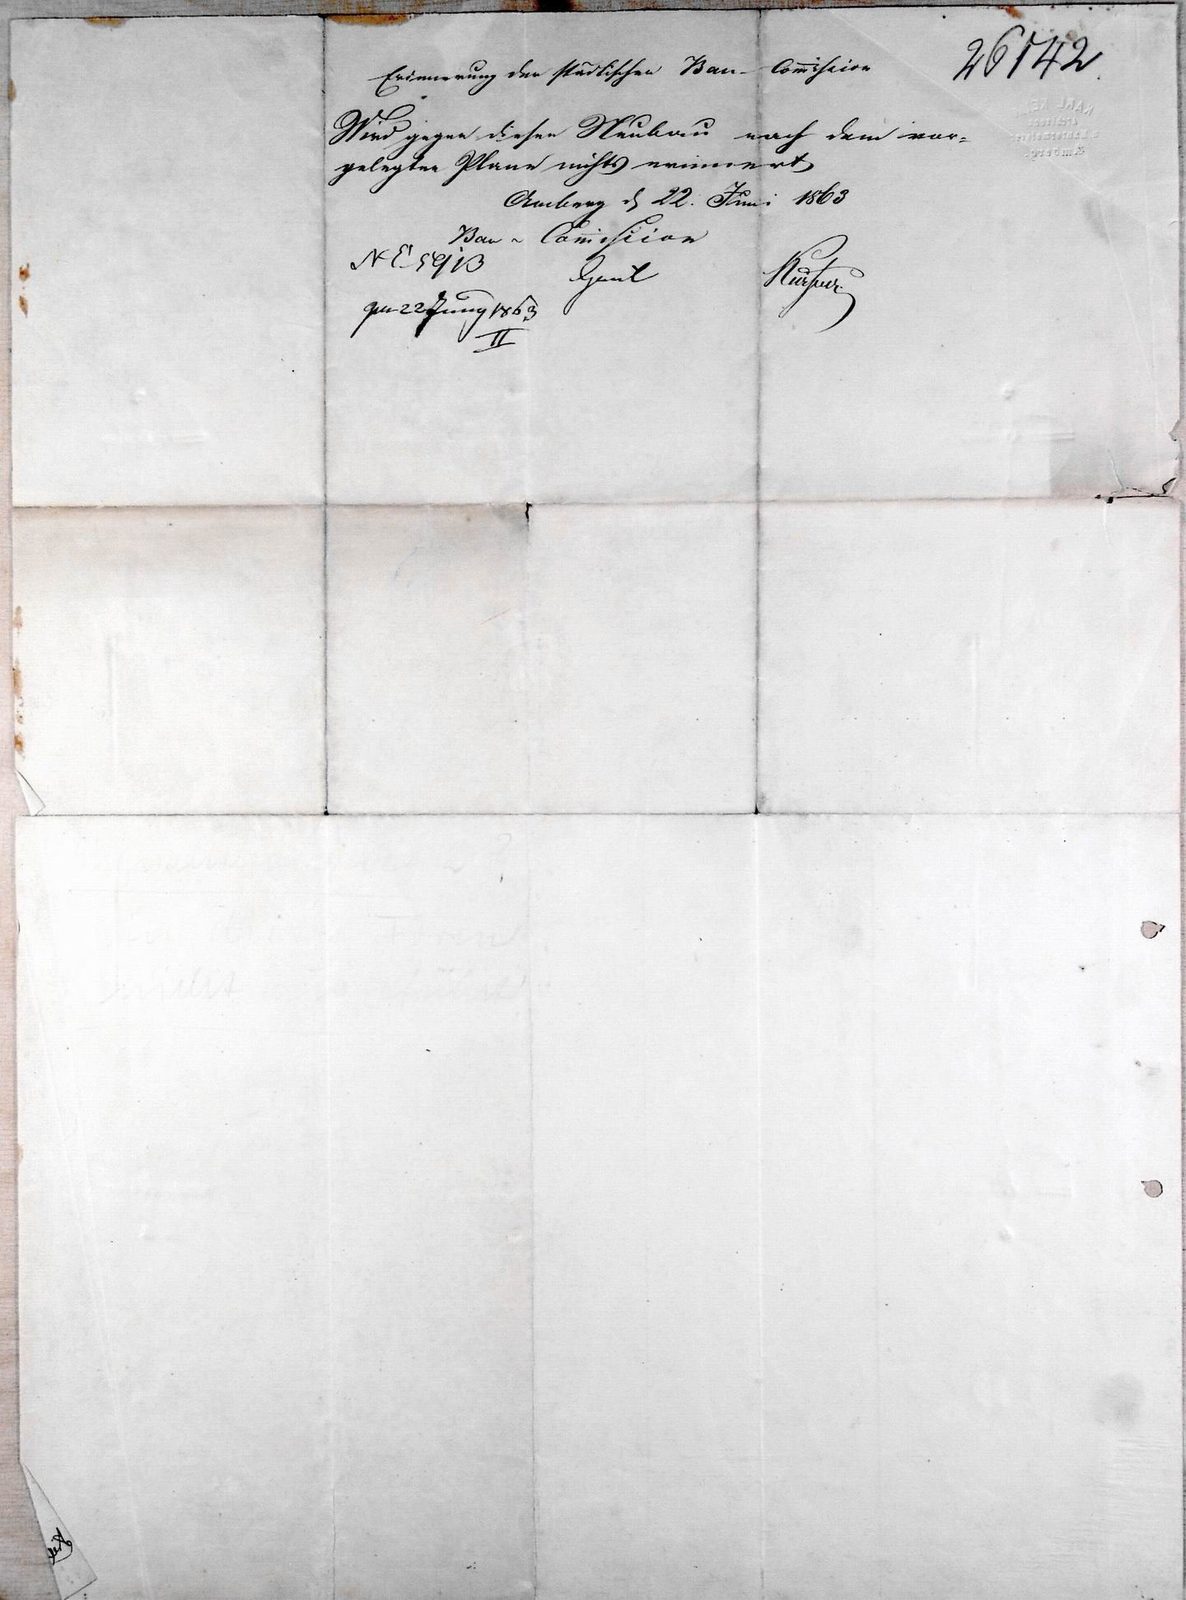 26742
Erinnerung der städtischen Bau-Comission
Wird gegen diesen Neubau nach dem vor=
gelegten Plane nichts erinnert
Amberg d 22. Juni 1863
Bau - Comission
N E 5913
pr 22 Juny 1863
II